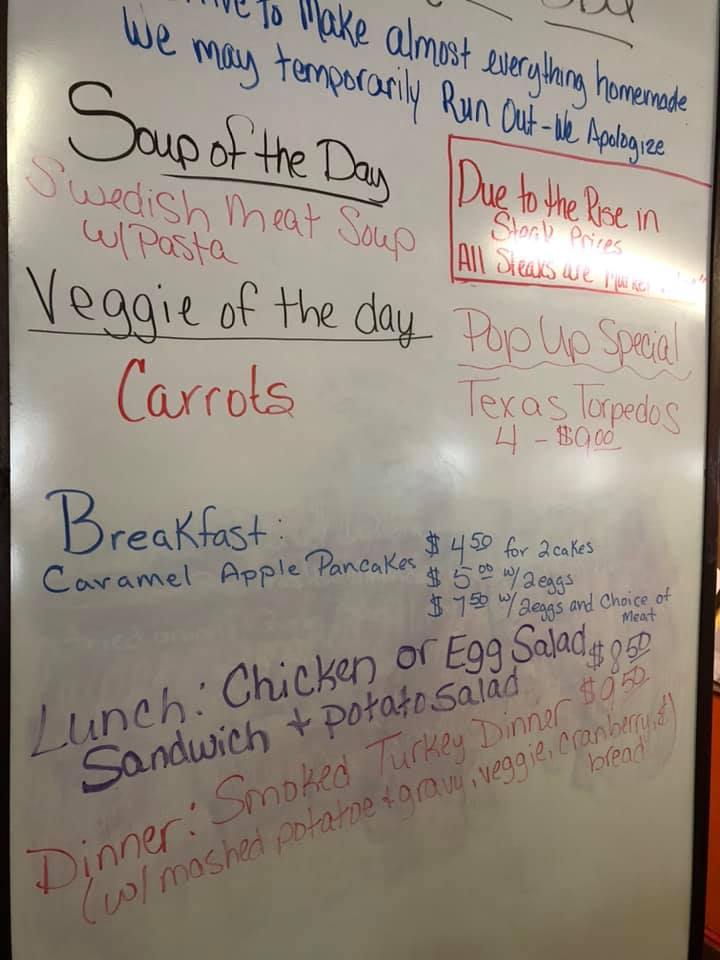 to Make almost everything homemade
We may temporarily Run Out - We Apologize
Soup of the Day
Swedish Meat Soup
w/ Pasta
Due to the Rise in
Steak Prices
All Steaks are Market
Veggie of the day
Carrots
Pop Up Special
Texas Torpedos
4 - $9.00
Breakfast:
Caramel Apple Pancakes $4.50 for 2 cakes
$5.00 w/ 2 eggs
$7.50 w/ 2 eggs and Choice of
Meat
Lunch: Chicken or Egg Salad $8.50
Sandwich + potato Salad
Dinner: Smoked Turkey Dinner $9.50
(w/ mashed potatoe + gravy, veggie, cranberry, &)
bread